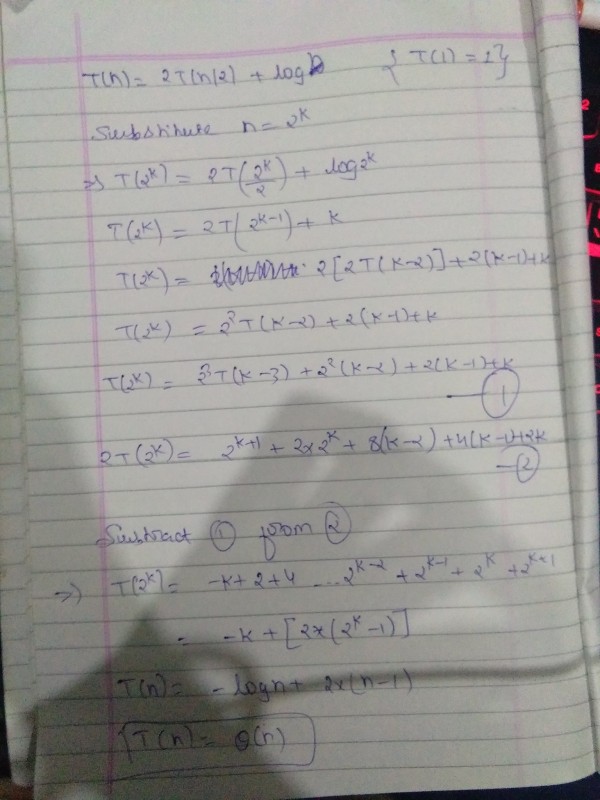 T(n) = 2T(n/2) + log n { T(1) = 1}
Substitute n = 2^k
⇒ T(2^k) = 2T(2^k/2) + log 2^k
T(2^k) = 2T(2^(k-1)) + k
T(2^k) = 2[2T(k-2)] + 2(k-1)+k
T(2^k) = 2^2 T(k-2) + 2(k-1)+k
T(2^k) = 2^3 T(k-3) + 2^2(k-2) + 2(k-1)+k
— ①
2T(2^k) = 2^(k+1) + 2×2^k + 8(k-2) + 4(k-1)+2k
— ②
Subtract ① from ②
⇒ T(2^k) = -k+2+4 ... 2^(k-2) + 2^(k-1) + 2^k + 2^(k+1)
= -k + [2×(2^k-1)]
T(n) = - log n + 2×(n-1)
T(n) = θ(n)